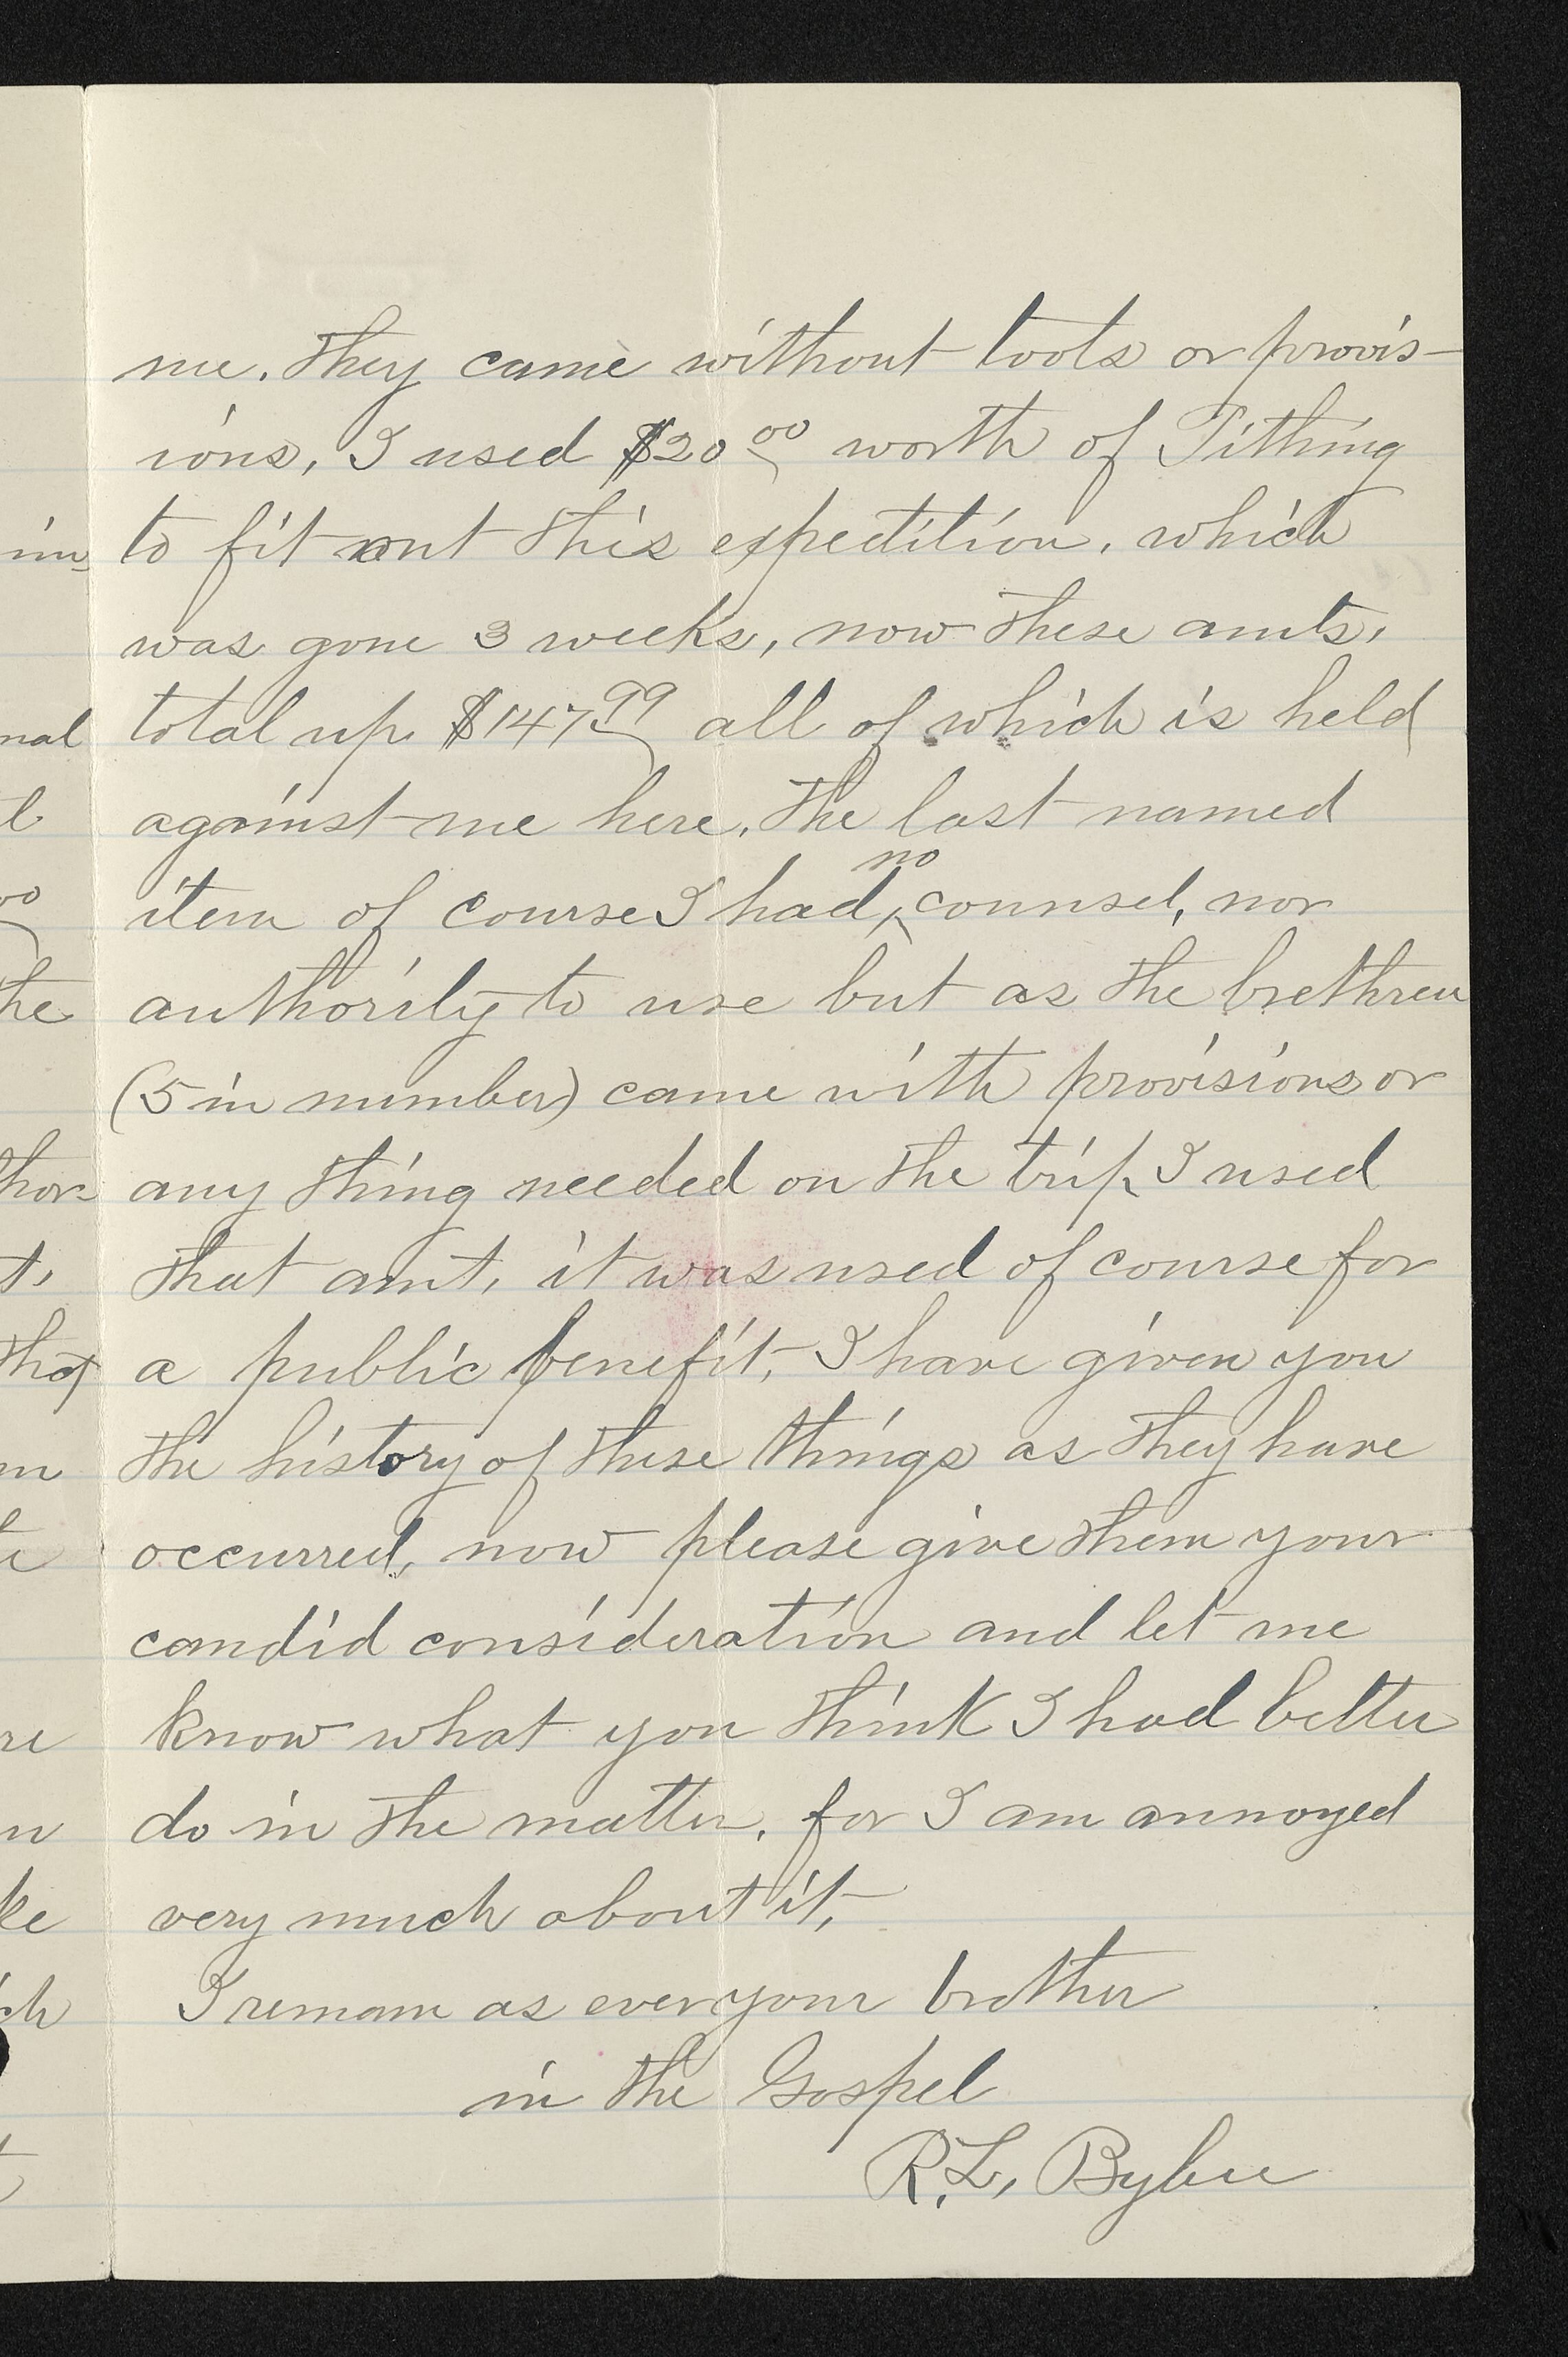 me. They came without tools or provis-
ions, I used $20.00 worth of Tithing
to fit out this expedition, which
was gone 3 weeks, now these amts,
total up $147.99 all of which is held
against me here. The last named
item of course I had no counsel, nor
authority to use but as the brethren
(5 in number) came with provisions or
any thing needed on the trip I used
that amt, it was used of course for
a public benefit, I have given you
the history of these things as they have
occurred, now please give them your
candid consideration and let me
know what you think I had better
do in the matter, for I am annoyed
very much about it,
I remain as ever your brother
in the Gospel
R. L, Bybee